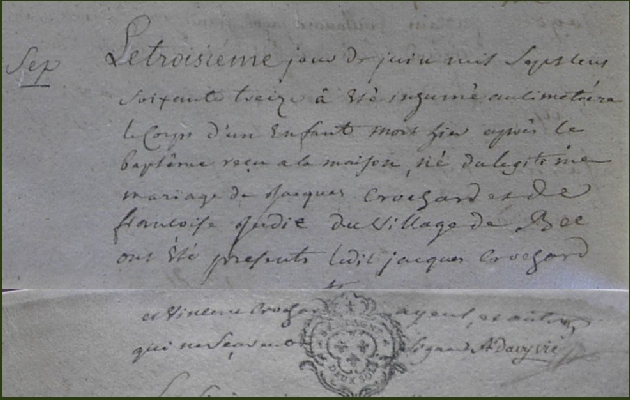 Sep
Letroisiéme jour de juin mil Sept cens
soixante treize à été inhumé au cimetiére
le Corps d'un Enfant mort hier après le
baptême reçu a la maison, né du legitéme
mariage de Jacques Crochard et de
francoise Judic du Village de
ont été presents ledit jacques Crochard
et Vincent Crochard ayeul, et autres
qui ne Sçavent Signer
BRETAGNE
DEUX SOLS